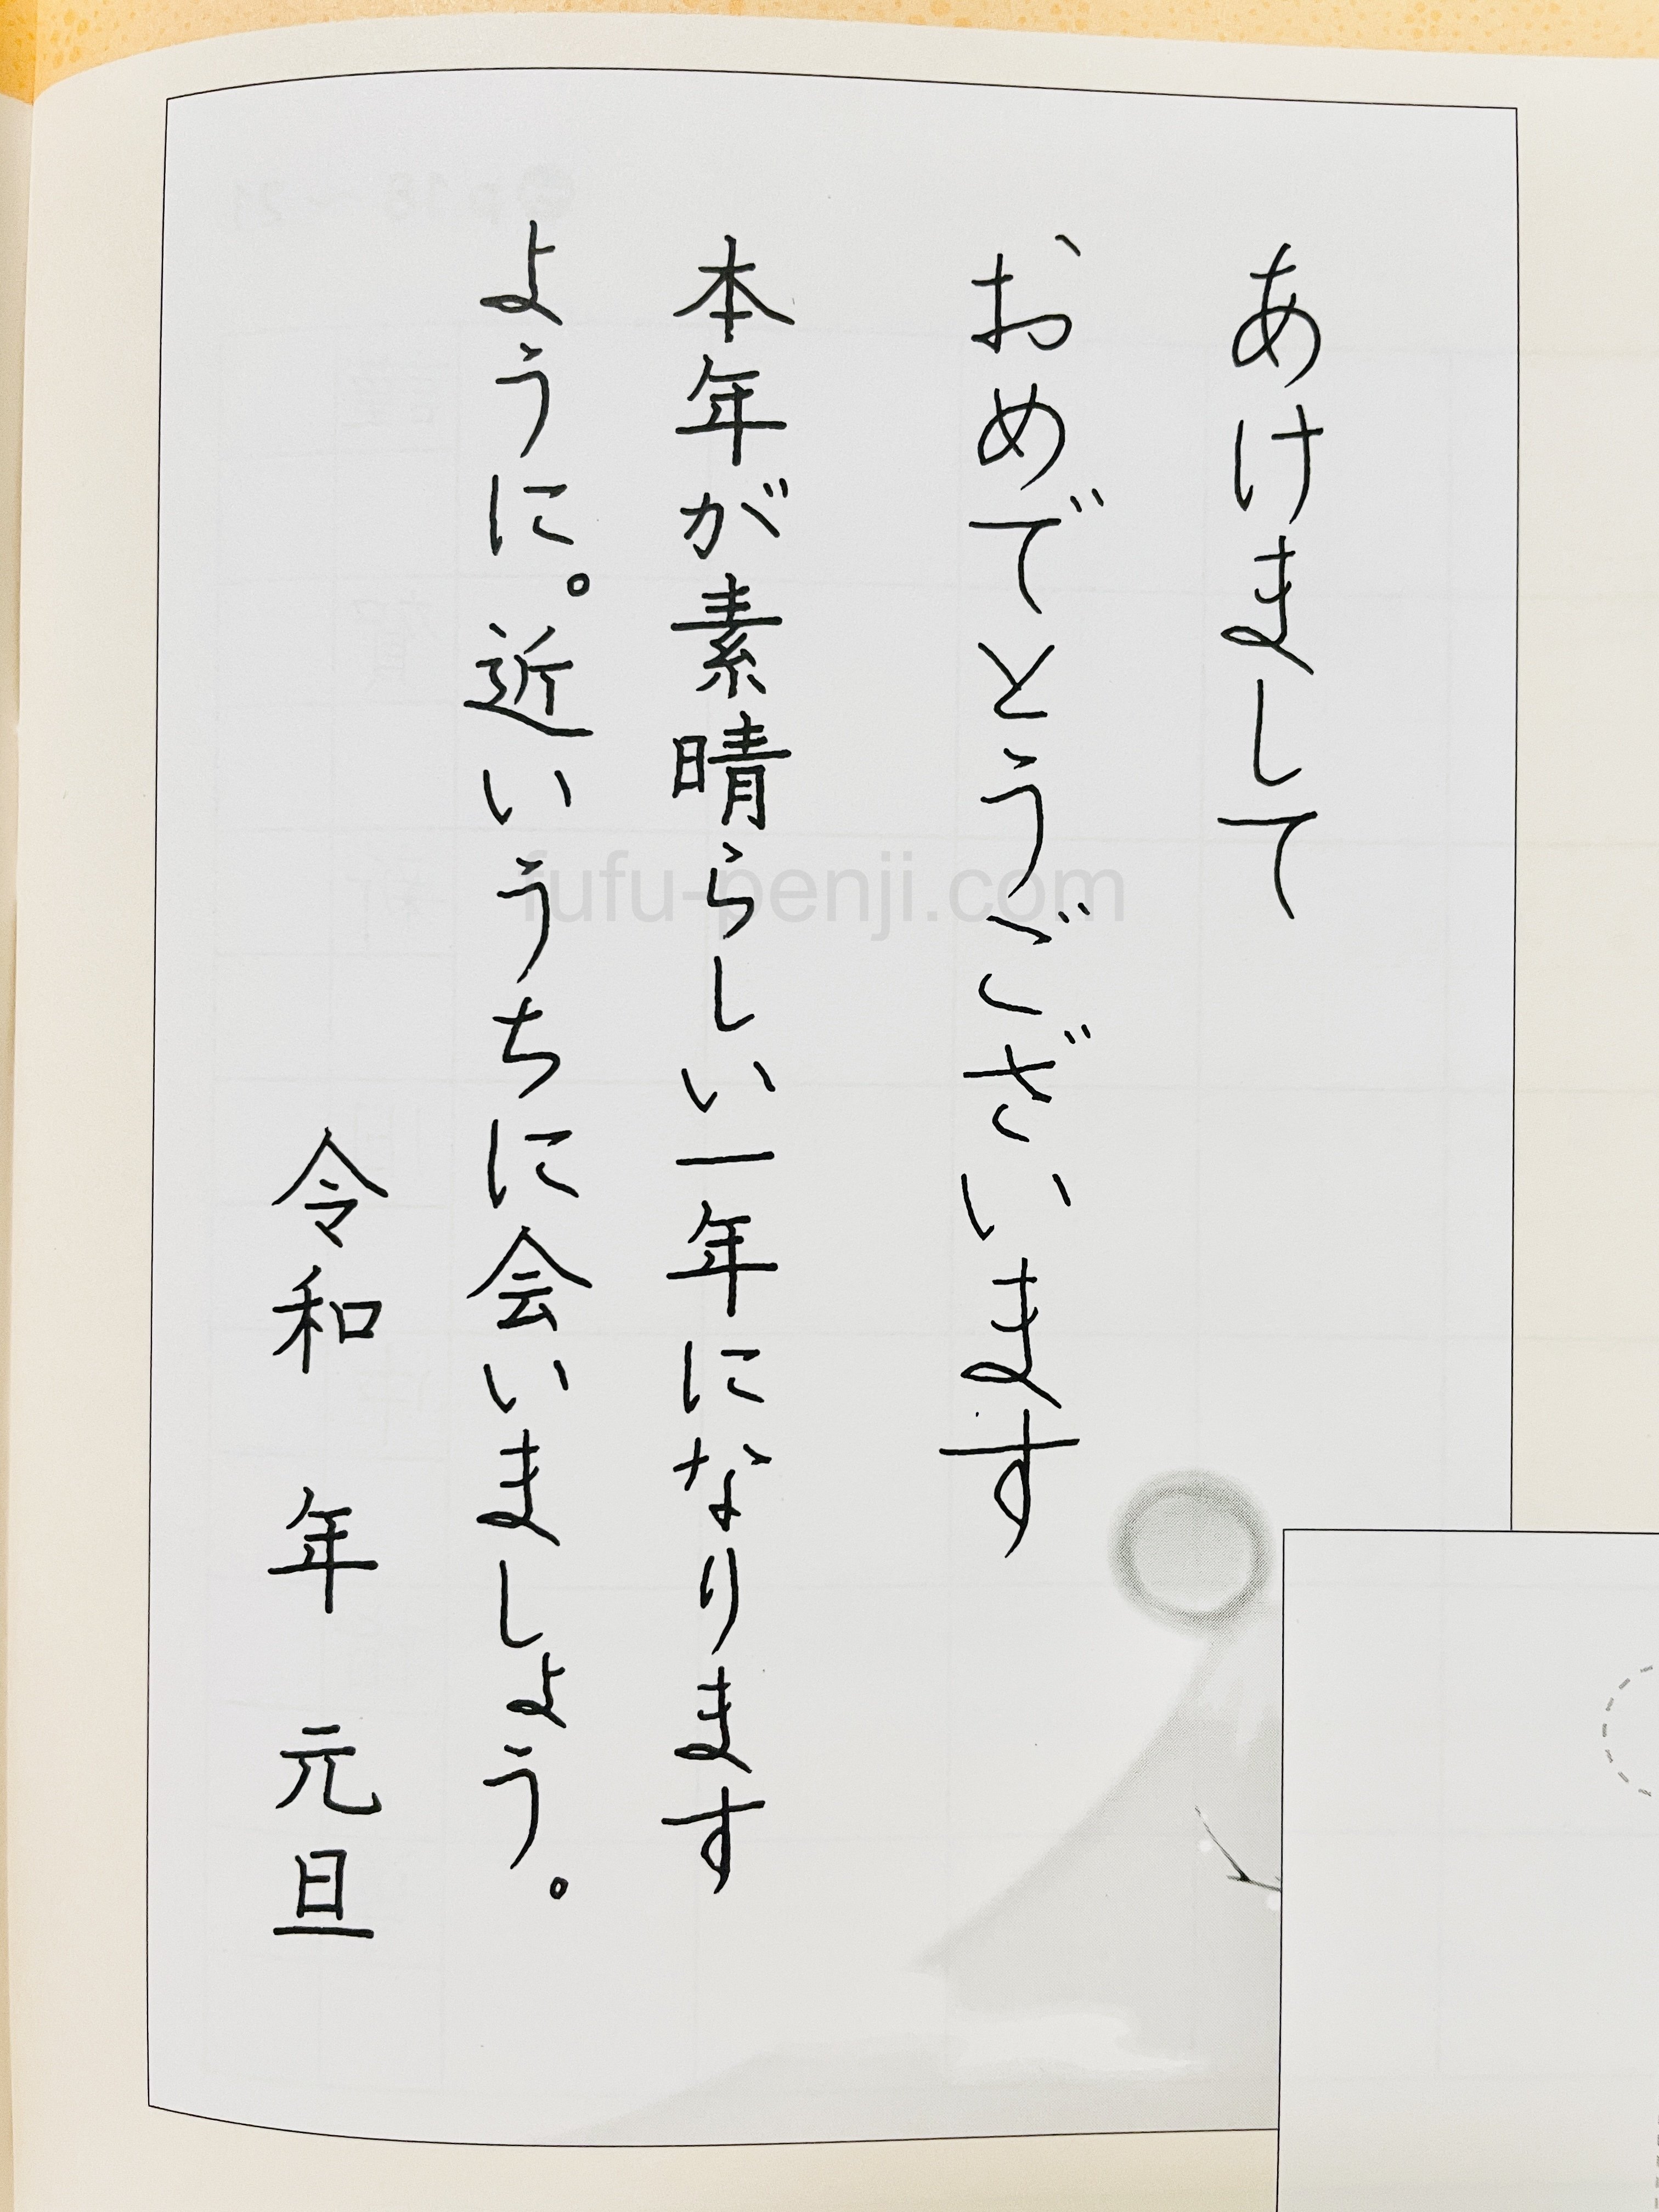 あけまして
おめでとうございます
本年が素晴らしい一年になります
ように。近いうちに会いましょう。
令和 年 元旦
fufu-penji.com